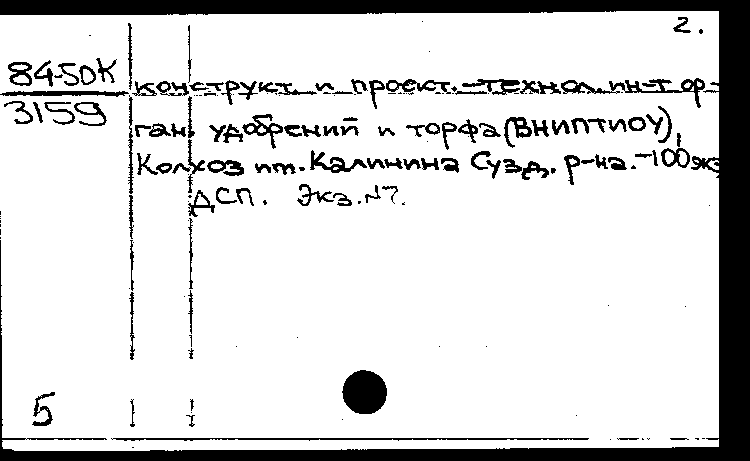 2.
84-50К
3159
конструкт. и проект.-технол. ин-т ор-
ган. удобрений и торфа (ВНИПТИОУ),
Колхоз им. Калинина Сузд. р-на.-100экз
ДСП. Экз.N7.
5